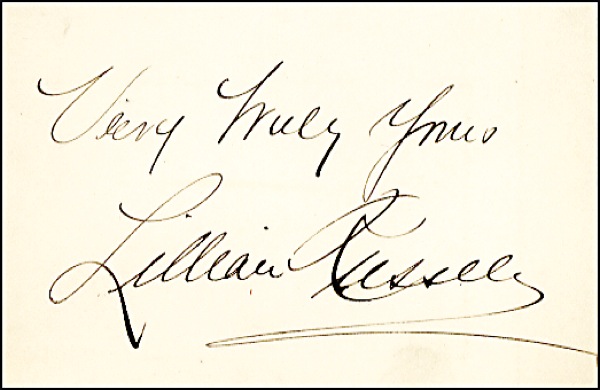 Very Truly Yours
Lillian Russell